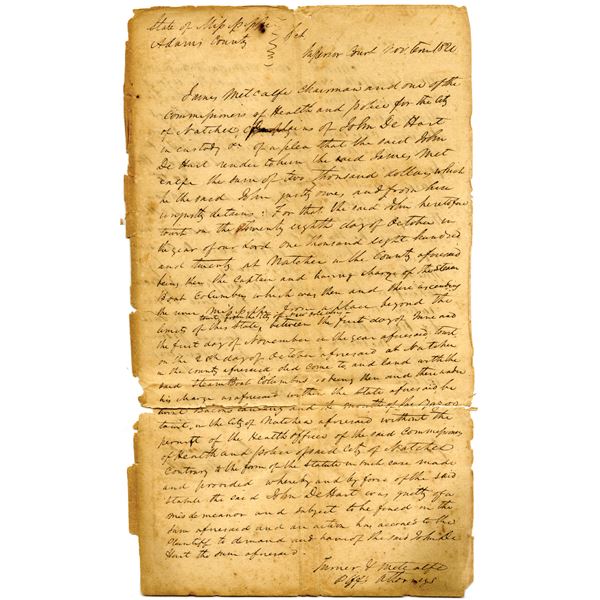 State of Mississippi
Adams County } Sct
Superior Court Nov Term 1820
James Metcalfe Chairman and one of the
Commissioners of Health and police for the City
of Natchez complains of John De Hart
in custody &c of a plea that the said John
De Hart render to him the said James Met
calfe the sum of two thousand dollars which
he the said John justly owes, and from him
unjustly detains: For that the said John heretofore
towit on the twenty eighth day of October in
the year of our Lord one thousand eight hundred
and twenty at Natchez in the County aforesaid
being then the Captain and having charge of the Steam
Boat Columbus which was then and there ascending
the river Mississippi from a place beyond the
towit, from the City of New Orleans
limits of this State, between the first day of June and
the first day of November in the year aforesaid towit
on the 28th day of October aforesaid at Natchez
in the county aforesaid did come to and land with the
said Steam Boat Columbus so being then and there under
his charge as aforesaid within the State aforesaid be
twixt Bacons landing and the mouth of the Bayou
towit, in the City of Natchez aforesaid without the
permit of the Health officer of the said Commissioners
of Health and police of said City of Natchez
Contrary to the form of the Statute in such case made
and provided whereby and by force of the said
Statute the said John De Hart was guilty of a
misdemeanor and subject to be fined in the
sum aforesaid and an action has accrued to the
Plaintiff to demand and have of the said John De
Hart the sum aforesaid.
Turner & Metcalfe
Plffs Attorneys